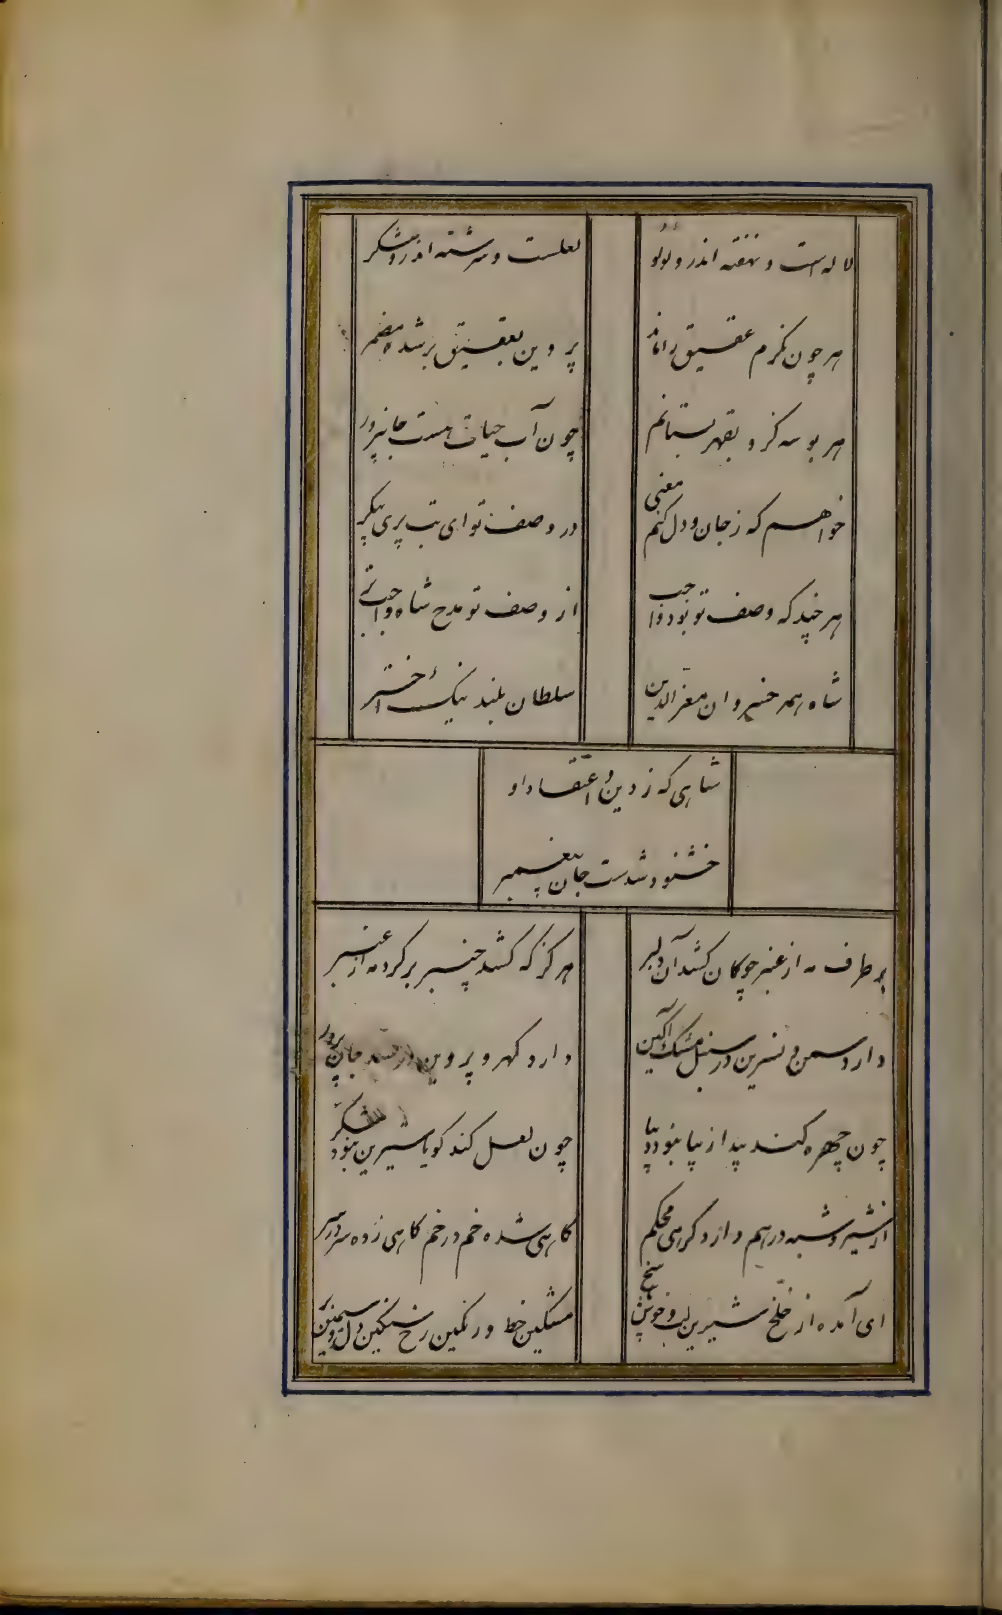 لاله است و نهفته اندرو لولو
لعلست و سرشته اندرو شکر
هر چون نگرم عقیق را ماند
پروین بعقیق بر شده مضمر
هر بوسه کزو بقهر بستانم
چون آب حیات هست جانپرور
خواهم که ز جان و دل کنم معنی
در وصف تو ای بت پری پیکر
هر چند که وصف تو بود واجب
از وصف تو مدح شاه واجب‌تر
شاه همه خسروان معز الدین
سلطان بلند نیک اختر
شاهی که ز دین و اعتقاد او
خشنود شدست جان پیغمبر
بر طرف مه از عنبر چوکان کشد آن دلبر
هرگز که کشد چنبر بر کرد مه از عنبر
دارد سمن و نسرین در سنبل مشک آکین
دارد کهر و پروین در جان پرور
چون چهره کند پیدا زیبا بود دیبا
چون لعل کند کویا شیرین بود شکر
از شیر و شبه درهم دارد کرهی محکم
کاهی شده خم در خم کاهی زده سر در سر
ای آمده از خلخ شیرین لب و خوش پاسخ
مشکین خط و رنکین رخ سنکین دل و سیمین بر